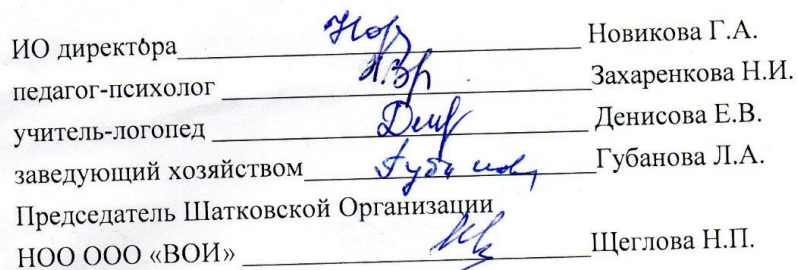 ИО директора Новикова Г.А.
педагог-психолог Захаренкова Н.И.
учитель-логопед Денисова Е.В.
заведующий хозяйством Губанова Л.А.
Председатель Шатковской Организации
НОО ООО «ВОИ» Щеглова Н.П.